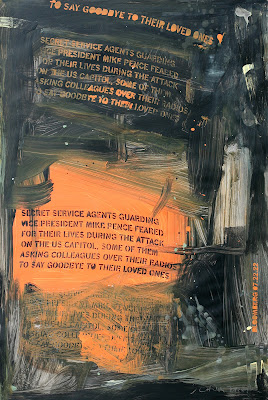 TO SAY GOODBYE TO THEIR LOVED ONES
SECRET SERVICE AGENTS GUARDING
VICE PRESIDENT MIKE PENCE FEARED
FOR THEIR LIVES DURING THE ATTACK
ON THE US CAPITOL, SOME OF THEM
ASKING COLLEAGUES OVER THEIR RADIOS
TO SAY GOODBYE TO THEIR LOVED ONES
SECRET SERVICE AGENTS GUARDING
VICE PRESIDENT MIKE PENCE FEARED
FOR THEIR LIVES DURING THE ATTACK
ON THE US CAPITOL, SOME OF THEM
ASKING COLLEAGUES OVER THEIR RADIOS
TO SAY GOODBYE TO THEIR LOVED ONES